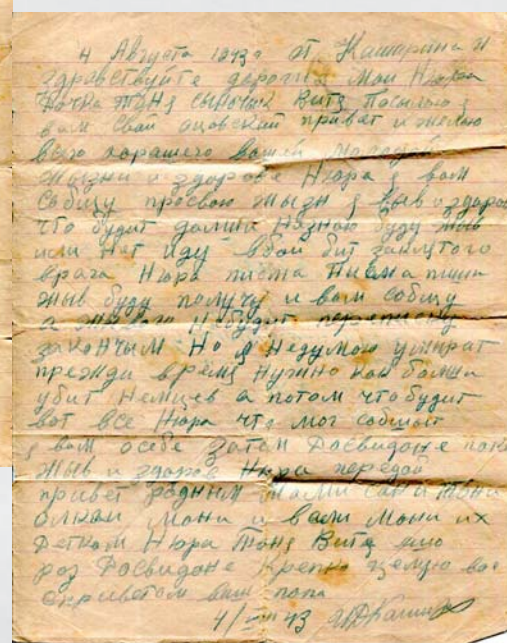 4 Августа 1943г от Кашарина И
здравствуйте дорогия мои Нюра
дочка Таня сыночик Витя посылаю я
вам свой оцовский привет и желаю
всего харашего вашей маладой
жызни и здоровя Нюра я вам
сабщу просвою жызн я жыв и здаров
что будит дальша незнаю буду жыв
или нет иду вбой бит заклутого
врага Нюра писма пиши
жыв буду получу и вам собщу
а живой небудит переписку
закончым Но я недумаю умират
прежди время Нужно как болша
убит Немцев а потом что будит
вот все Нюра что мог собщит
я вам осебе затем Досвидоне пока
жыв и здаров Нюра передай
привет родным мами Сани Тони
Мани и вали Мани их
деткам Нюра Таня Витя ище
роз Досвидоне крепко целую вас
сприветом ваш папа
4/VIII 43